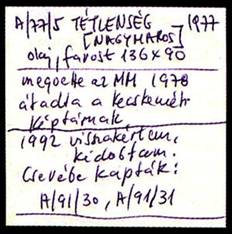 A/77/5 TÉTLENSÉG 1977
[NAGYMAROS]
olaj, farost 136x90
megvette az MM 1978
átadta a kecskeméti
képtárnak,
1992 visszakértem,
kidobtam.
Cserébe kapták:
A/91/30, A/91/31